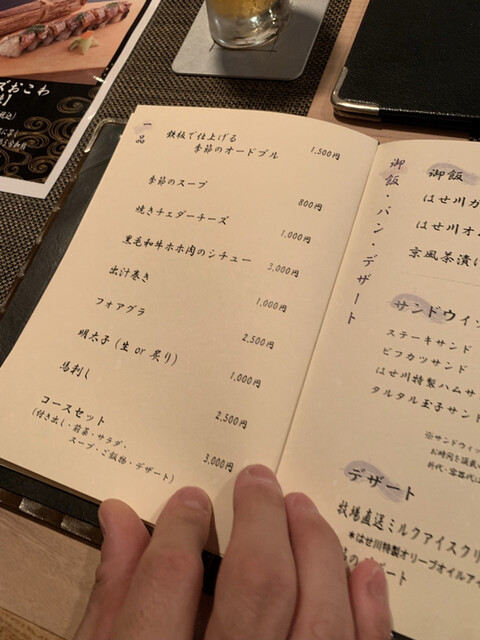 ズおこわ
一品
鉄板で仕上げる
季節のオードブル 1,500円
季節のスープ 800円
焼きチェダーチーズ 1,000円
黒毛和牛ホホ肉のシチュー 3,000円
出汁巻き 1,000円
フォアグラ 2,500円
明太子(生 or 炙り) 1,000円
馬刺し 2,500円
コースセット 3,000円
(付き出し・前菜・サラダ・
スープ・ご飯類・デザート)
御飯・パン・デザート
御飯
はせ川ガ
はせ川オ
京風茶漬け
サンドウィッ
ステーキサンド
ビフカツサンド
はせ川特製ハムサ
タルタル玉子サンド
※サンドウィッ
お時間を頂戴
折代・容器代は
デザート
牧場直送ミルクアイスクリ
*はせ川特製オリーブオイルアイ